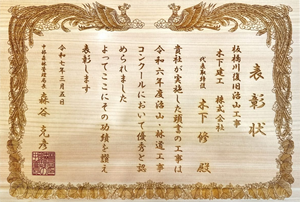 表彰状
板橋川復旧治山工事
木下建工 株式会社
代表取締役 木下 修 殿
貴社が実施した頭書の工事は
令和六年度治山・林道工事
コンクールにおいて優秀と認
められました
よってここにその功績を讃え
表彰します
令和七年三月五日
中部森林管理局長 森谷 克彦